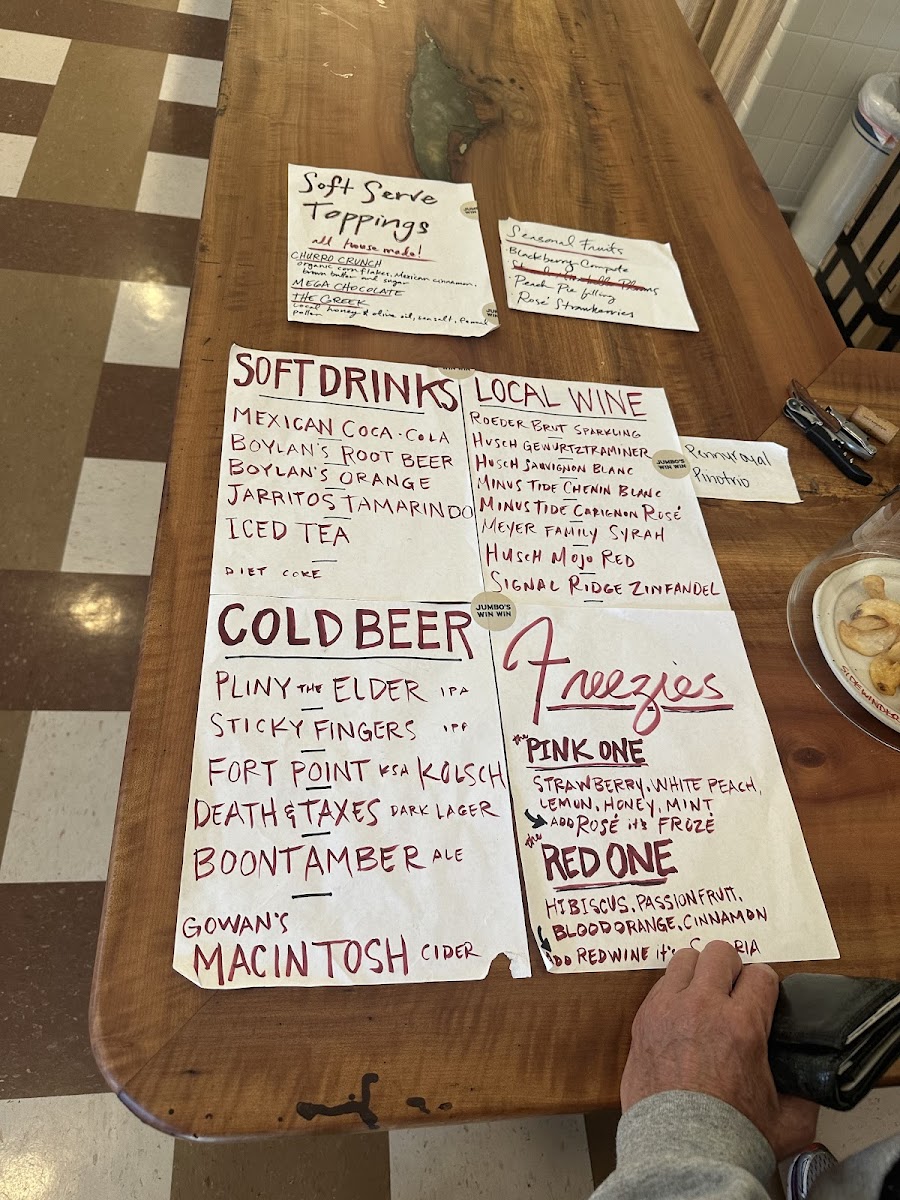 Soft Serve
Toppings
all house made!
CHURRO CRUNCH
organic corn flakes, Mexican cinnamon,
brown butter and sugar
MEGA CHOCOLATE
THE GREEK
local honey & olive oil, sea salt, fennel
pollen
Seasonal Fruits
· Blackberry Compote
Plums
· Peach Pie filling
· Rosé Strawberries
SOFT DRINKS
MEXICAN COCA-COLA
BOYLAN'S ROOT BEER
BOYLAN'S ORANGE
JARRITOS TAMARINDO
ICED TEA
DIET COKE
LOCAL WINE
ROEDER BRUT SPARKLING
HUSCH GEWURTZTRAMINER
HUSCH SAUVIGNON BLANC
MINUS TIDE CHENIN BLANC
MINUS TIDE CARIGNON ROSÉ
MEYER FAMILY SYRAH
HUSCH MOJO RED
SIGNAL RIDGE ZINFANDEL
JUMBO'S
WIN WIN
Pennyroyal
Pinotrio
JUMBO'S
WIN WIN
COLD BEER
PLINY THE ELDER IPA
STICKY FINGERS
FORT POINT KSA KÖLSCH
DEATH & TAXES DARK LAGER
BOONT AMBER ALE
GOWAN'S
MACINTOSH CIDER
Freezies
the PINK ONE
STRAWBERRY, WHITE PEACH,
LEMON, HONEY, MINT
ADD ROSÉ it's FRÖZÉ
the RED ONE
HIBISCUS, PASSIONFRUIT,
BLOOD ORANGE, CINNAMON
ADD RED WINE it's
SIDEWINDER